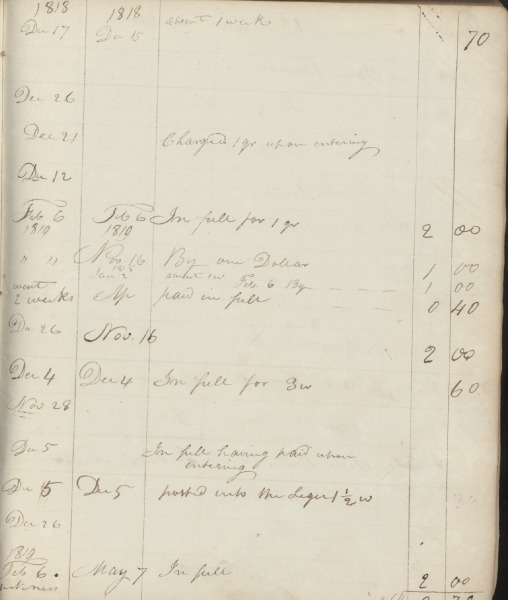 1818 1818
Dec 17 Dec 15 absent 1 week 70
Dec 26
Dec 21 Charged 1 qr upon entering
Dec 12
Feb 6 Feb 6 In full for 1 qr
1819 1819 2 00
" " Nov. 16 By one Dollar 1 00
Jan 2 went in Feb 6 13
went 1 00
2 weeks Ap paid in full 0 40
De 26 Nov. 16
2 00
Dec 4 Dec 4 In full for 3w 60
Nov 28
De 5 In full having paid upon
entering
De 15 Dec 5 posted into the Leger 1 1/2 w
Dec 26
1819
Feb 6. May 7 In full 2 00